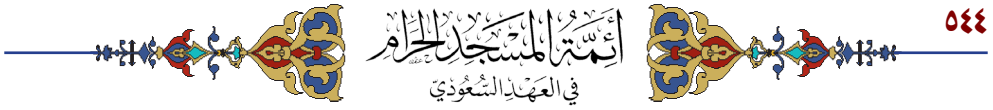 ٥٤٤
أَئِمَّةُ المَسْجِدِ الحَرَامِ
فِي العَهْدِ السُّعُودِيِّ